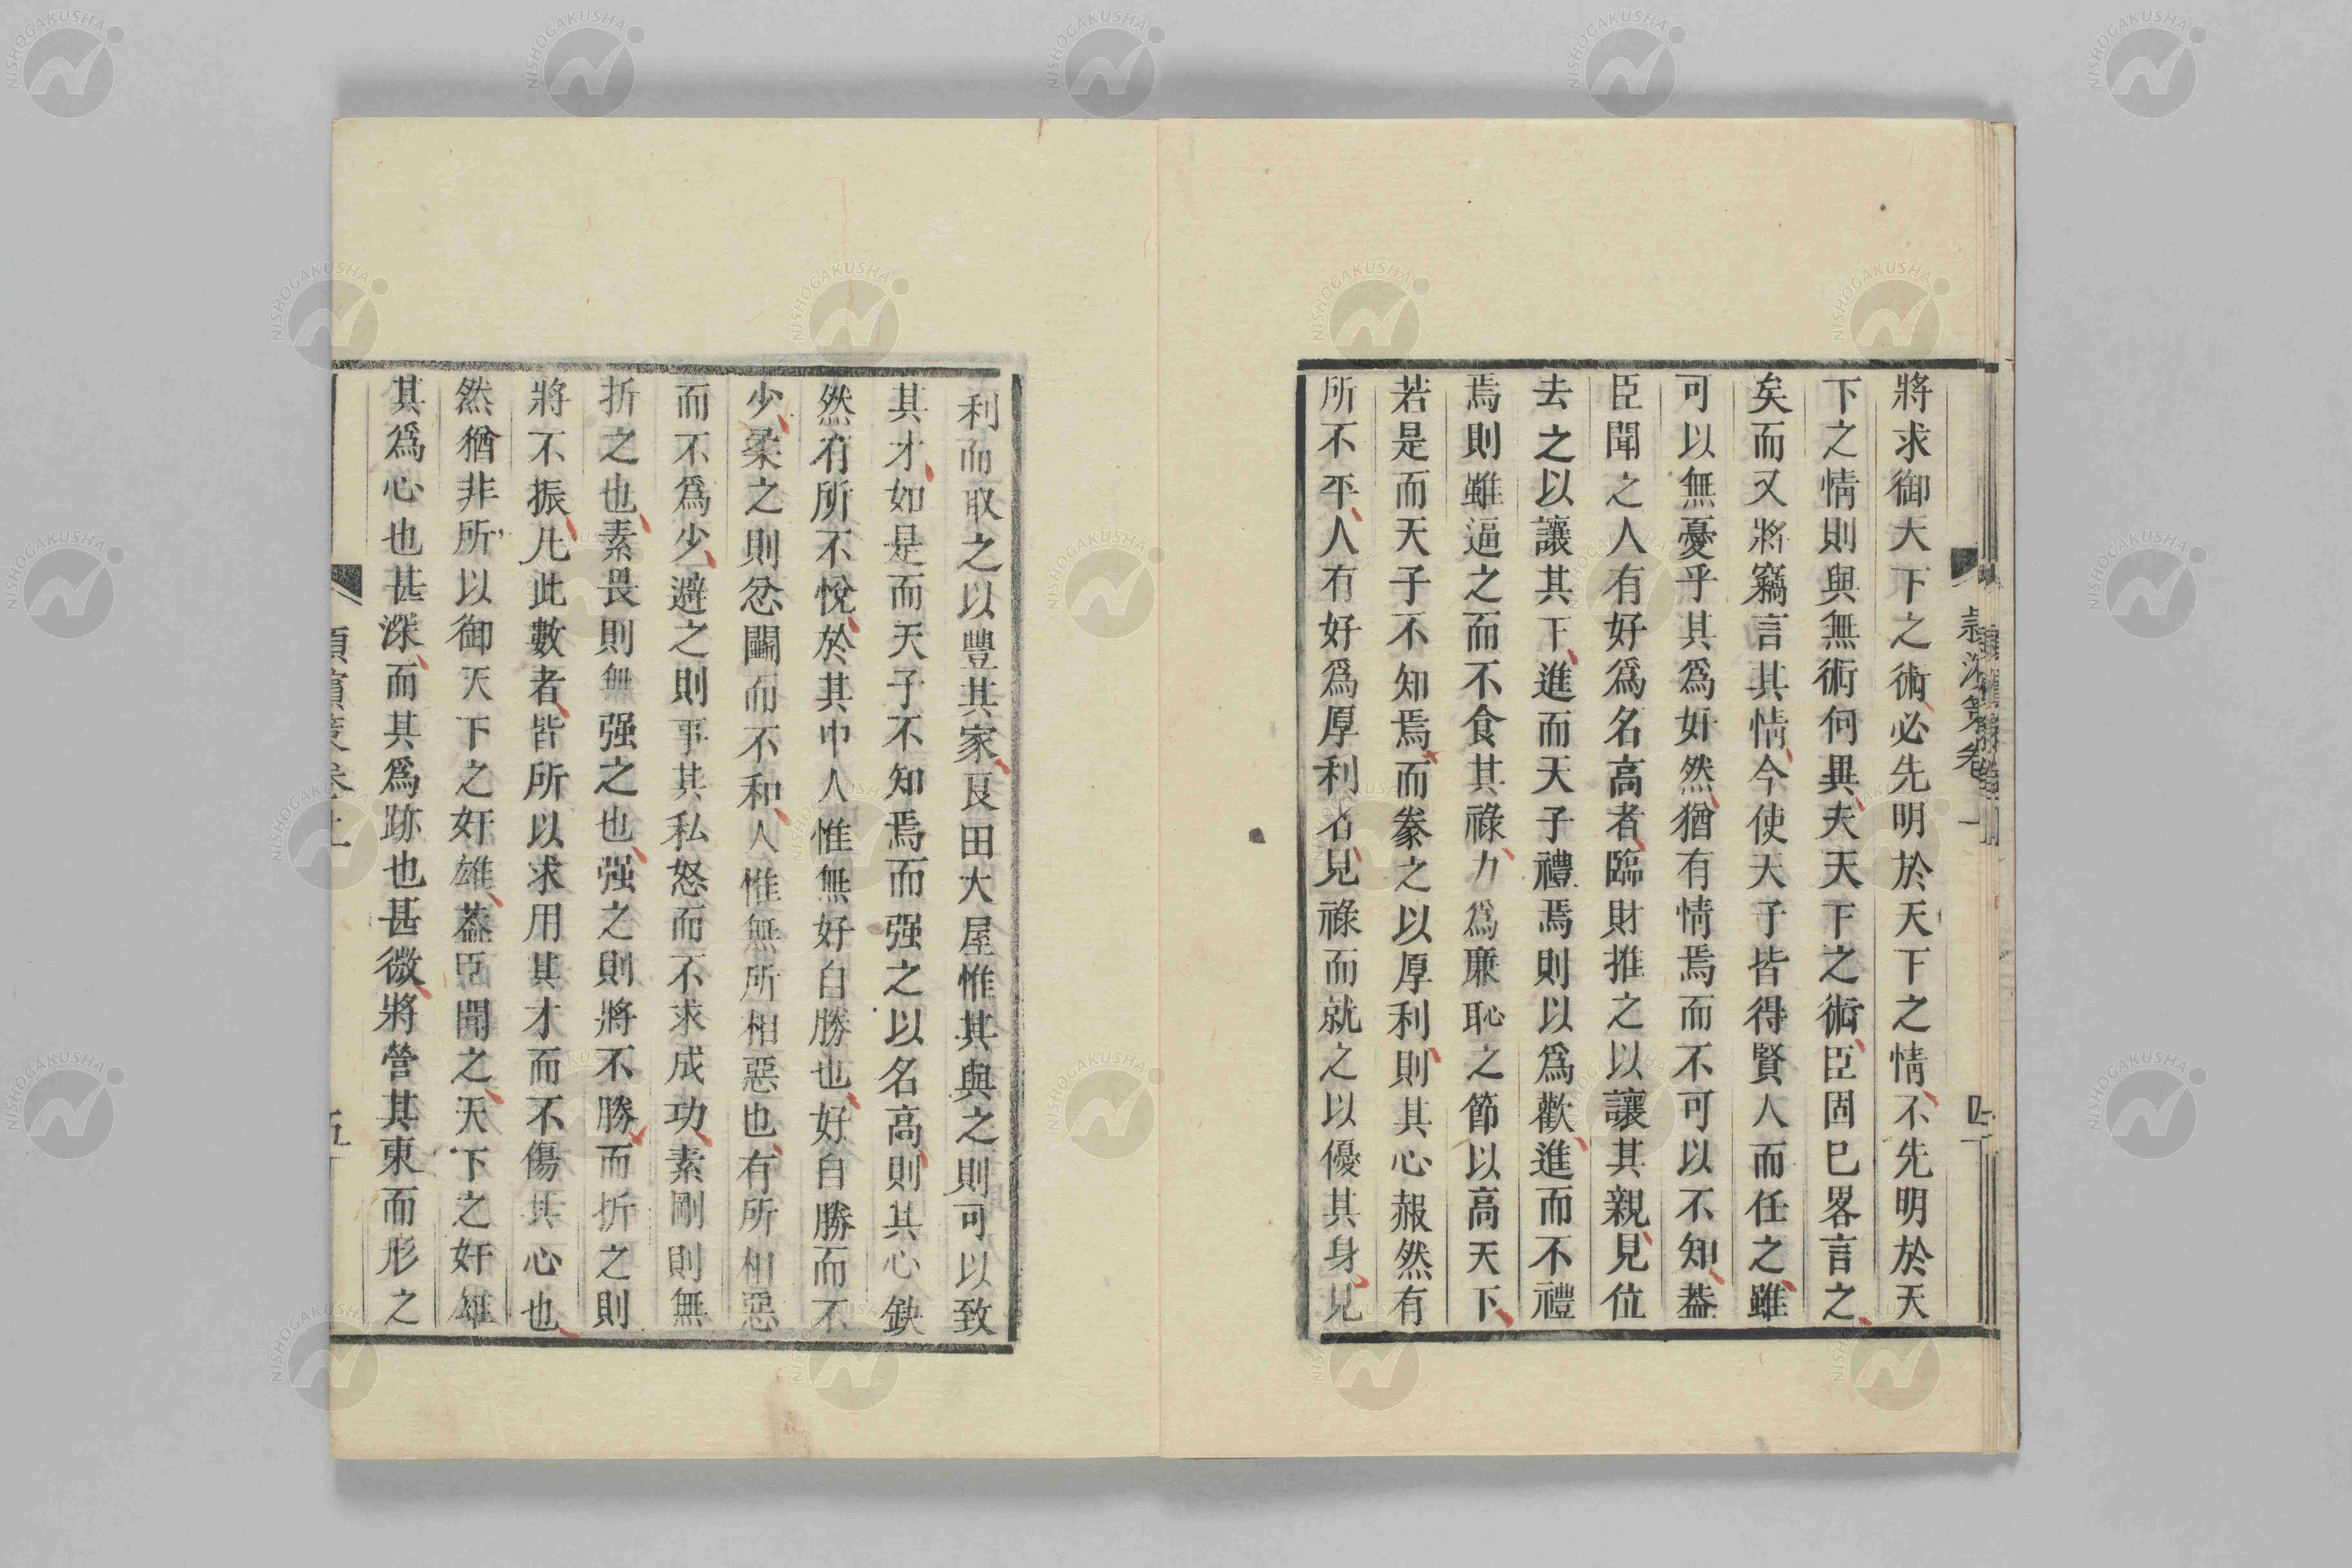 將求御天下之術必先明於天下之情不先明於天
下之情則與無術何異夫天下之術臣固已畧言之
矣而又將竊言其情今使天子皆得賢人而任之雖
可以無憂乎其爲奸然猶有情焉而不可以不知葢
臣聞之人有好爲名高者臨財推之以讓其親見位
去之以讓其下進而天子禮焉則以爲歡進而不禮
焉則雖逼之而不食其祿力爲廉恥之節以高天下
若是而天子不知焉而豢之以厚利則其心赧然有
所不平人有好爲厚利者見祿而就之以優其身見
利而取之以豐其家良田大屋惟其與之則可以致
其才如是而天子不知焉而强之以名高則其心缺
然有所不悅於其中人惟無好自勝也好自勝而不
少柔之則忿鬭而不和人惟無所相惡也有所相惡
而不爲少避之則事其私怒而不求成功素剛則無
折之也素畏則無强之也强之則將不勝而折之則
將不振凡此數者皆所以求用其才而不傷其心也
然猶非所以御天下之奸雄葢臣聞之天下之奸雄
其爲心也甚深而其爲跡也甚微將營其東而形之
NISHOGAKUSHA